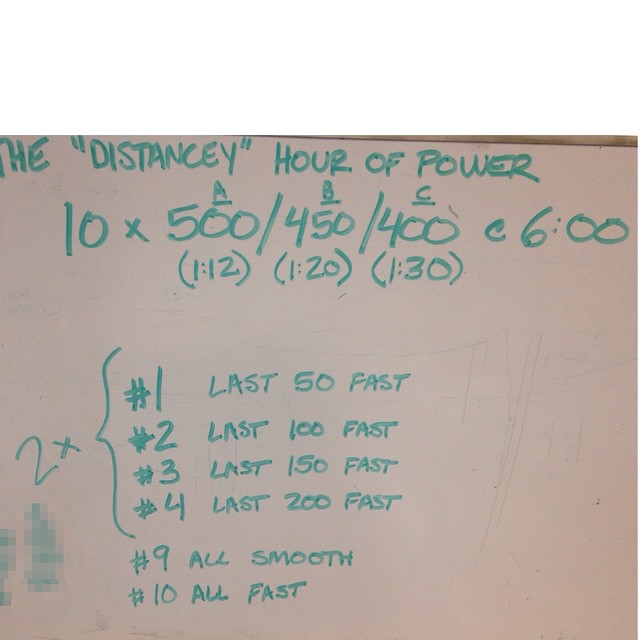 THE "DISTANCEY" HOUR OF POWER
A B C
10 x 500/450/400 @ 6:00
(1:12) (1:20) (1:30)
#1 LAST 50 FAST
#2 LAST 100 FAST
2x
#3 LAST 150 FAST
#4 LAST 200 FAST
#9 ALL SMOOTH
#10 ALL FAST